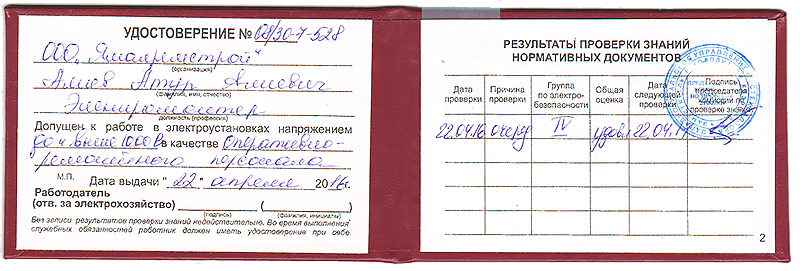 УДОСТОВЕРЕНИЕ № 08/30-7-528
ООО "Ямалремстрой"
(организация)
Алиев Артур Алиевич
(фамилия, имя, отчество)
Электромонтер
должность (профессия)
Допущен к работе в электроустановках напряжением
до и выше 1000 В в качестве оперативно-
ремонтного персонала
М.П. Дата выдачи "22" апреля 2016г.
Работодатель
(отв. за электрохозяйство) ( )
(подпись) (фамилия, инициалы)
Без записи результатов проверки знаний недействительно. Во время выполнения
служебных обязанностей работник должен иметь удостоверение при себе.
РЕЗУЛЬТАТЫ ПРОВЕРКИ ЗНАНИЙ
НОРМАТИВНЫХ ДОКУМЕНТОВ
Дата проверки
Причина проверки
Группа по электро-безопасности
Общая оценка
Дата следующей проверки
Подпись председателя комиссии по проверке знаний
22.04.16 очеред IV удовл 22.04.17
2